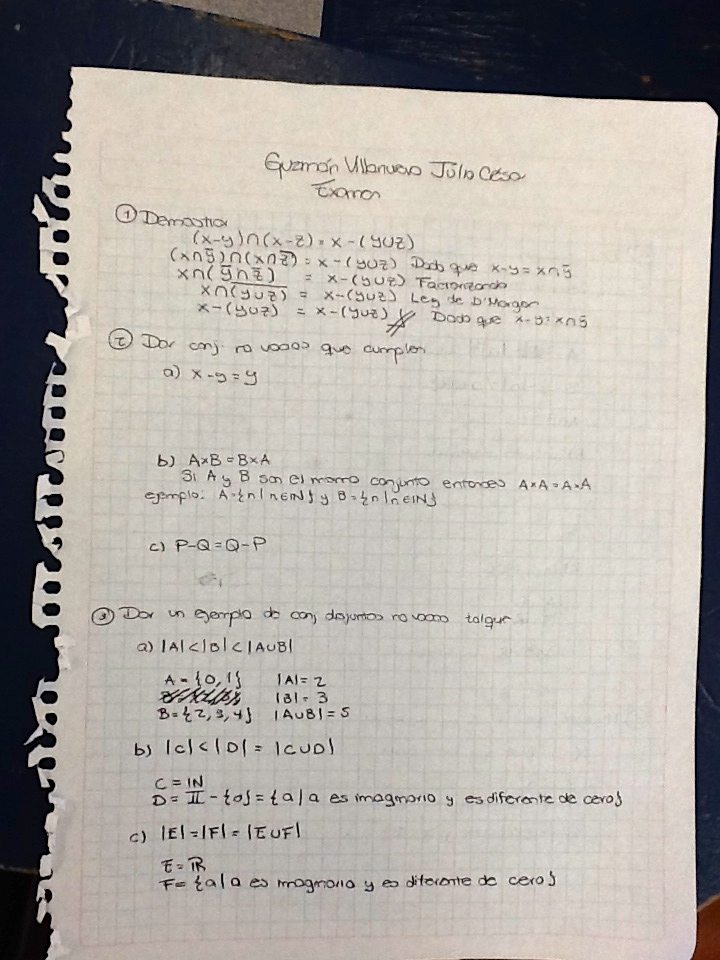 Guzmán Villanueva Julio César
Examen
① Demostrar
(x-y)∩(x-z) = x-(y∪z)
(x∩ȳ)∩(x∩z̄) = x-(y∪z) Dado que x-y = x∩ȳ
x∩(ȳ∩z̄) = x-(y∪z) Factorizando
x∩(\overline{y∪z}) = x-(y∪z) Ley de D'Morgan
x-(y∪z) = x-(y∪z) Dado que x-y = x∩ȳ
② Dar conj. no vacios que cumplen
a) x-y = y
b) A×B = B×A
Si A y B son el mismo conjunto entonces A×A = A×A
ejemplo: A={n|n∈ℕ} y B={n|n∈ℕ}
c) P-Q = Q-P
③ Dar un ejemplo de conj disjuntos no vacios tal que
a) |A|<|B|<|A∪B|
A = {0,1} |A| = 2
|B| = 3
B = {2,3,4} |A∪B| = 5
b) |C|<|D| = |C∪D|
C = ℕ
D = 𝕀-{0} = {a|a es imaginario y es diferente de cero}
c) |E| = |F| = |E∪F|
E = ℝ
F = {a|a es imaginario y es diferente de cero}